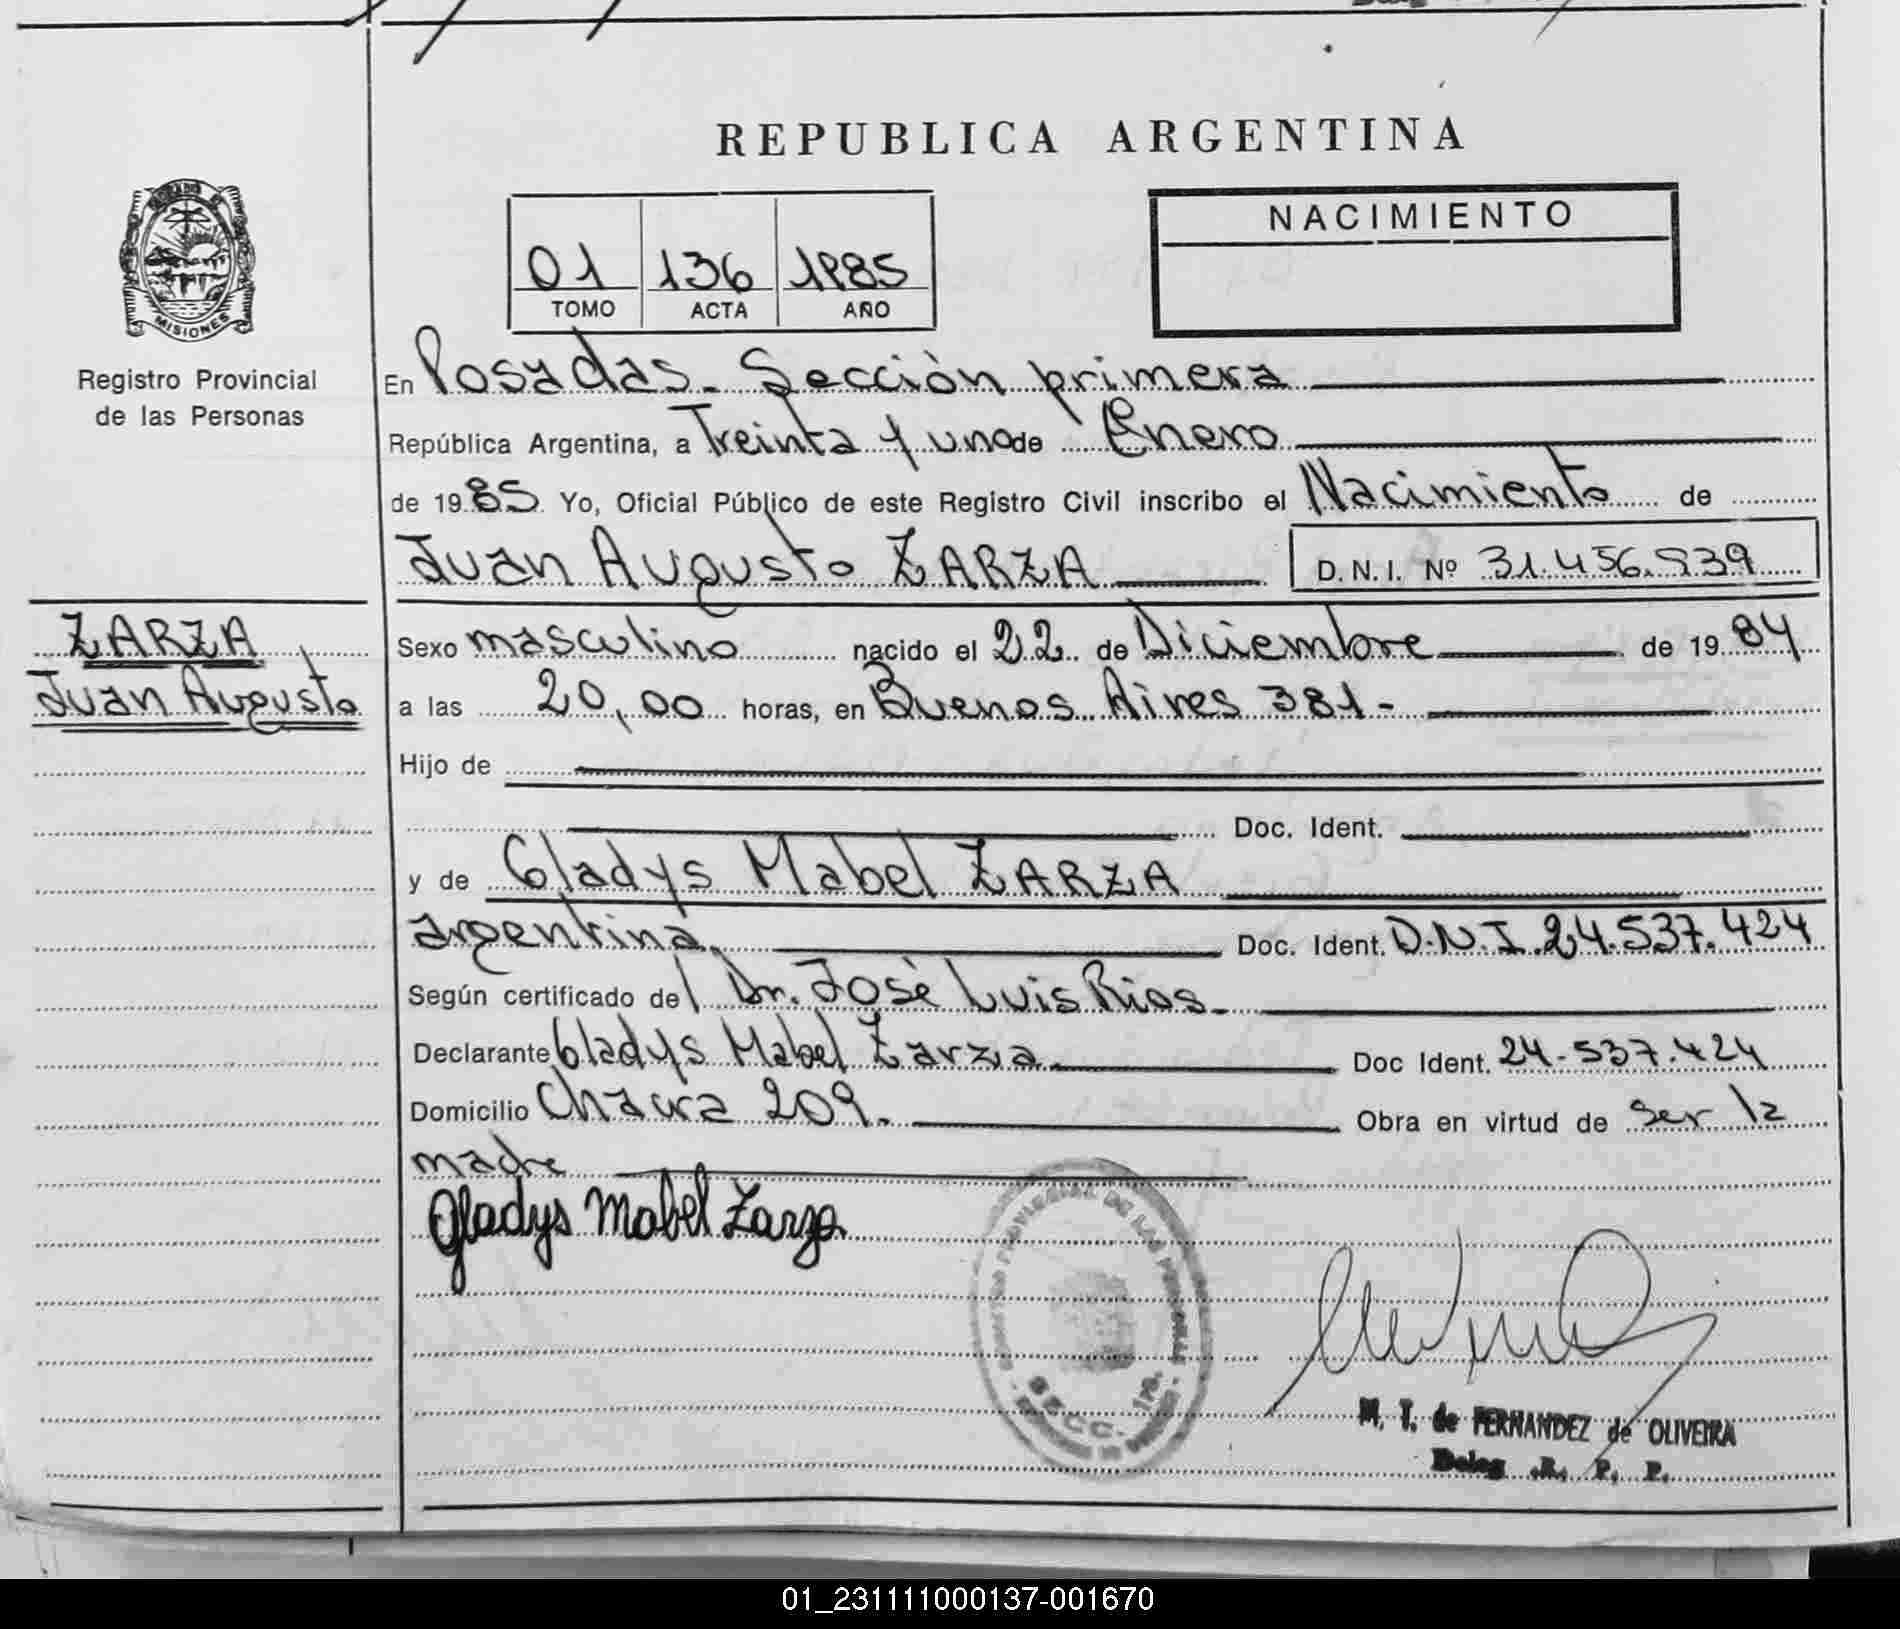 REPUBLICA ARGENTINA
MISIONES
Registro Provincial
de las Personas
01 136 1985
TOMO ACTA AÑO
NACIMIENTO
En Posadas - Sección primera
República Argentina, a Treinta y uno de Enero
de 1985 Yo, Oficial Público de este Registro Civil inscribo el Nacimiento de
Juan Augusto ZARZA D. N. I. Nº 31.456.539
ZARZA
Juan Augusto
Sexo masculino nacido el 22 de Diciembre de 1984
a las 20,00 horas, en Buenos Aires 381-
Hijo de
Doc. Ident.
y de Gladys Mabel ZARZA
argentina Doc. Ident. D.N.I. 24.537.424
Según certificado del Dr. José Luis Rios
Declarante Gladys Mabel Zarza Doc Ident. 24.537.424
Domicilio 209. Obra en virtud de ser la
madre
Gladys Mabel Zarza
DE LAS PERSONAS
SECC. 1ra.
M. T. de FERNANDEZ de OLIVEIRA
Deleg .R. P. P.
01_231111000137-001670